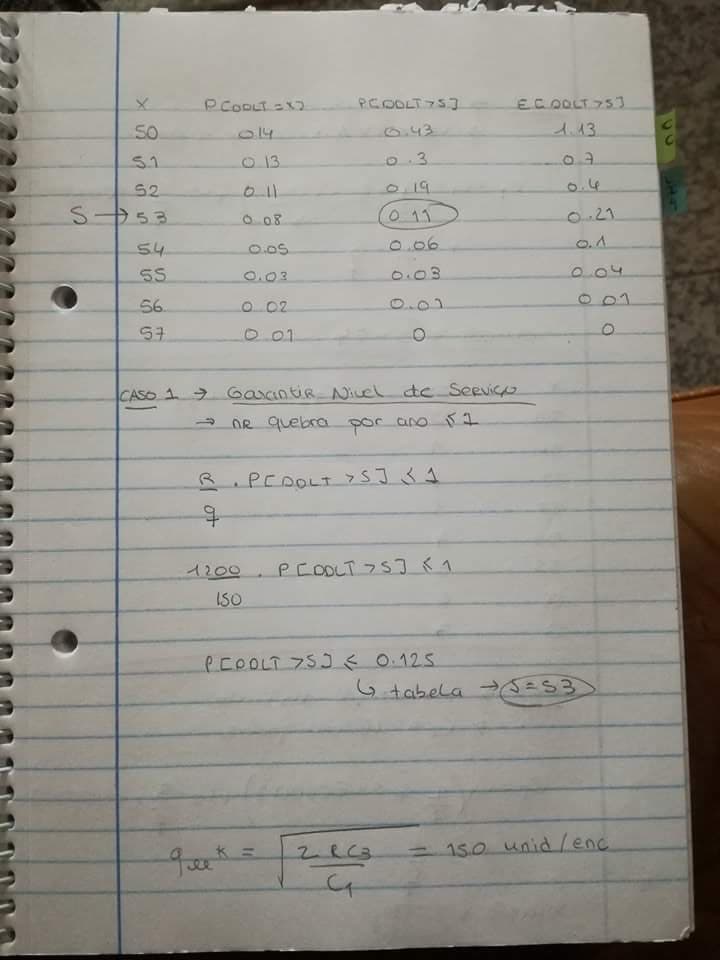 X P[DDLT=X] P[DDLT>S] E[DDLT>S]
50 0.14 0.43 1.13
51 0.13 0.3 0.7
52 0.11 0.19 0.4
S → 53 0.08 0.11 0.21
54 0.05 0.06 0.1
55 0.03 0.03 0.04
56 0.02 0.01 0.01
57 0.01 0 0
CASO 1 → Garantir Nivel de Serviço
→ nr quebra por ano ≤ 1
R . P[DDLT>S] ≤ 1
q
1200 . P[DDLT>S] ≤ 1
150
P[DDLT>S] ≤ 0.125
↳ tabela → S=53
q* = √ 2RC3 = 150 unid/enc
C1